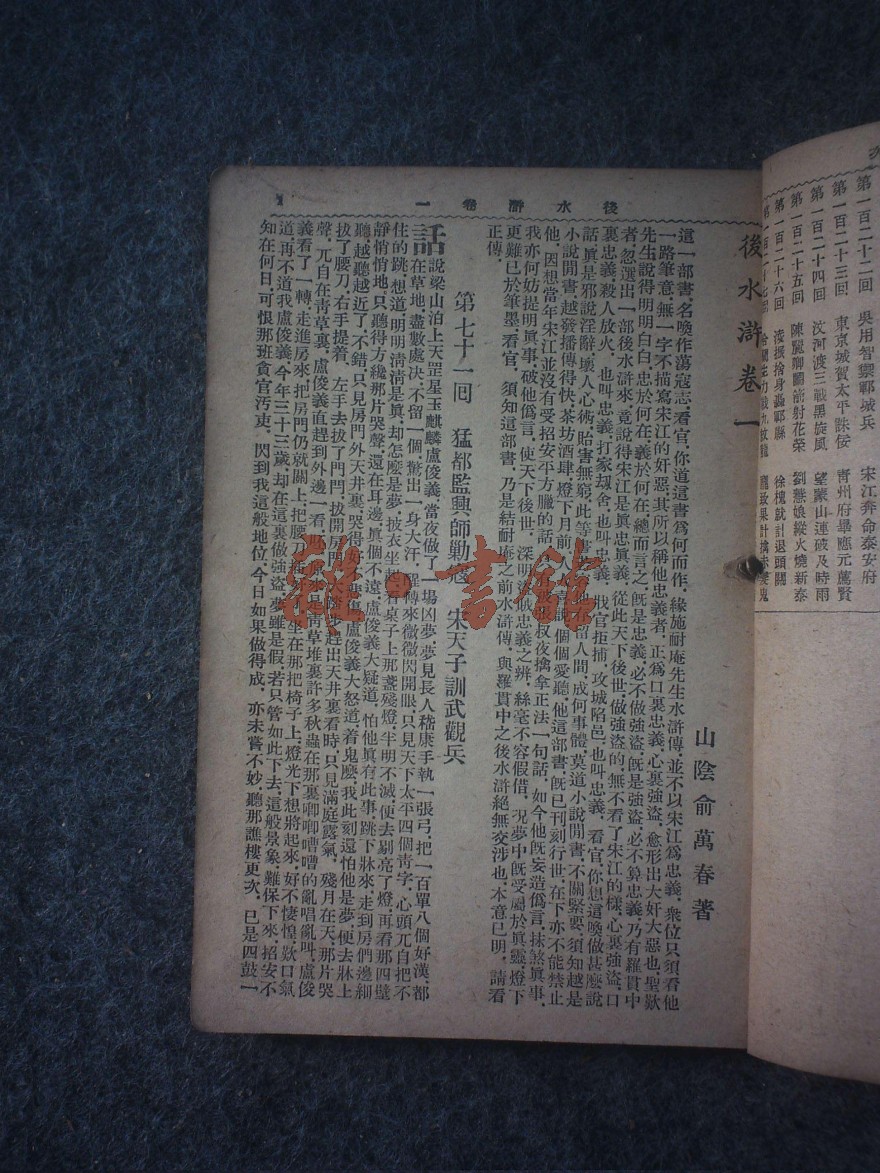 第一百二十二回　吳用智禦鄆城兵　宋江奔命泰安府
第一百二十三回　東京城賀太平誅佞　青州府畢應元薦賢
第一百二十四回　汶河渡三戰黑旋風　望蒙山連破及時雨
第一百二十五回　陳麗卿鬬箭射花榮　劉慧娘縱火燒新泰
第一百二十六回　凌振捨身轟鄆縣　徐槐就計退頭關
後水滸卷一
1
後水滸卷一
山陰俞萬春著
這一部書，名喚作蕩寇志，看官，你道這書爲何而作，緣施耐庵先生水滸傳，並不以宋江爲忠義，衆位只須看他
一路筆意，無一字不描寫宋江的奸惡，其所以稱他忠義者，正爲口裏忠義，心裏強盜，愈形出大奸大惡也，聖歎
先生說得明明白白，忠於何在，義於何在，總而言之，旣是忠義，必不做強盜，旣是強盜，必不算忠義，乃有羅貫中
者，忽選出一部後水滸來，竟說得宋江是眞忠眞義，從此天下後世，做強盜的，無不看了宋江的樣，心裏強盜，口
裏忠義，殺人放火，也叫忠義，打家刼舍，也叫忠義，戕官拒捕，攻城陷邑，也叫忠義，看官，你想這喚做甚麼說
話，眞是邪說淫辭，壞人心術，貽害無窮，此等書若容他存留人間，成何事體，莫道小說閒書，不關緊要，須知越是
小說閒書，越發播傳得快，茶坊酒肆，燈下月前，人人喜說，個個愛聽，他這部書，旣已刊刻行世，在下亦不能禁止
他，因想當年宋江，並沒有受招安平方臘的話，叔夜擒拿正法一句話，如今他旣妄造僞言，抹煞眞事，
我亦何妨提明眞事，破他僞言，使天下後世，深明盜賊忠義之辨，絲毫不容假借，況夢中旣受屬於眞靈，燈下
更難已於筆墨，看官，須知這部書，乃是結耐庵之前水滸傳，與羅貫中之後水滸，絕無交涉也，本意已明，請看
正傳，
第七十一回　猛都監興師勦寇　宋天子訓武觀兵
話說梁山泊上天罡星玉麒麟盧俊義，當夜做了一場凶夢，夢見長人嵇康，手執一張弓，把一百單八個好漢，都
在草地，盡數處決，不留一個，驚出一身大汗，醒轉來，微微閃開眼，只見天下太平四個靑字，心頭兀自把不
住的跳，想道，明明淸淸是眞，却怎麼是夢，披衣坐起，看桌子上那盞殘燈，半明不滅，便去剔亮了燈，再看那四壁
靜悄悄地，只聽得方纔那片哭聲，還在耳邊，眞個不遠，盧俊義大疑道，怕他眞有此事，跳下牀來，走到房門邊細
聽，越聽越近了，不錯，只見房門外天井裏，哭得好生悲傷，盧俊義大怒道，着鬼麼，我此刻還怕他是夢，便去牀上
拔了腰刀，右手提着，左手去拔了門閂，拔開房門，大踏步趕出天井裏看時，只見滿庭露氣，殘月在天，那片哭
聲，兀自在靑草裏，盧俊義直趕到外邊一看，是靑草堆裏許多秋蟲，在那裏唧唧嘈嘈的亂唱亂叫，盧俊
義看了一轉，走進房來，把房門仍就關上，把腰刀坐在那把椅子上，燈光下想將起來，好不悽惶，歎口氣
道，再不道我盧俊義，今年三十三歲，却在這裏做強盜，夢雖是假，若只管如此下去，這般景象，難保下來，招安不
知在何日，可恨那班貪官汚吏，閃到我這般地位，今日如果做得成，亦未嘗不妙，聽那譙樓更次，已是四鼓一
雜·書館